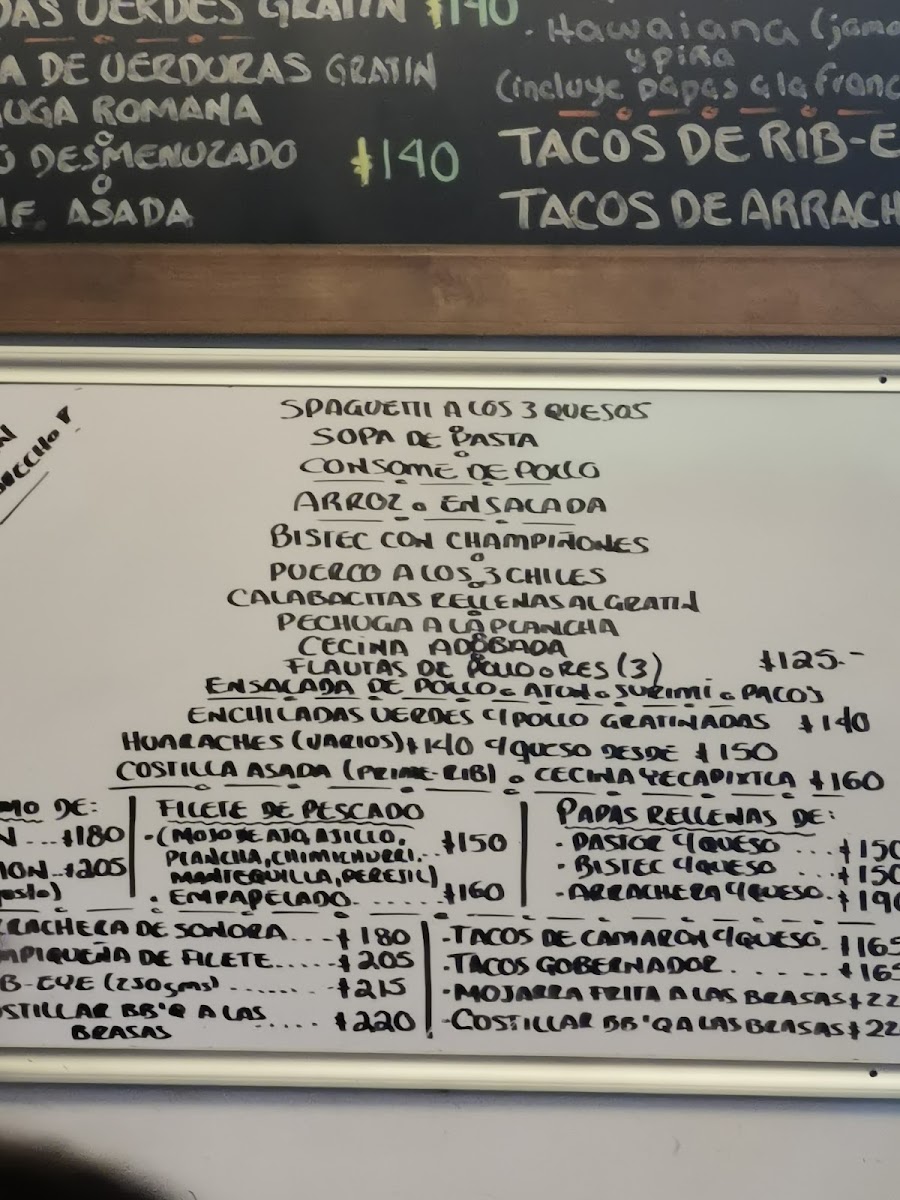 UERDES GRATIN $140
A DE VERDURAS GRATIN
UGA ROMANA
o
DESMENUZADO $140
o
ASADA
· Hawaiana (jamo
y piña
(incluye papas a la franc
TACOS DE RIB-E
TACOS DE ARRACH
SPAGUETTI A LOS 3 QUESOS
SOPA DE PASTA
o
CONSOME DE POLLO
ARROZ o ENSALADA
BISTEC CON CHAMPIÑONES
o
PUERCO A LOS 3 CHILES
o
CALABACITAS RELLENAS AL GRATIN
o
PECHUGA A LA PLANCHA
CECINA ADOBADA
FLAUTAS DE POLLO o RES (3) $125.-
ENSALADA DE POLLO o ATUN o SURIMI o PACOS
ENCHILADAS VERDES C/POLLO GRATINADAS $140
HUARACHES (VARIOS) $140 C/QUESO DESDE $150
COSTILLA ASADA (PRIME-RIB) o CECINA YECAPIXTLA $160
MO DE:
N ... $180
ION .. $205
FILETE DE PESCADO
- (MOJO DE AJO, AJILLO, $150
PLANCHA, CHIMICHURRI..
MANTEQUILLA, PEREJIL)
· EMPAPELADO....... $160
PAPAS RELLENAS DE:
· PASTOR C/QUESO ... $150
· BISTEC C/QUESO ... $150
- ARRACHERA C/QUESO. $190
RRACHERA DE SONORA.... $180
MPIQUEÑA DE FILETE..... $205
B-EYE (250gms) ........ $215
OSTILLAR BB'Q A LAS
BRASAS ..... $220
- TACOS DE CAMARON C/QUESO. $165
- TACOS GOBERNADOR....... $165
- MOJARRA FRITA A LAS BRASAS $22
- COSTILLAR BB'Q A LAS BRASAS $22